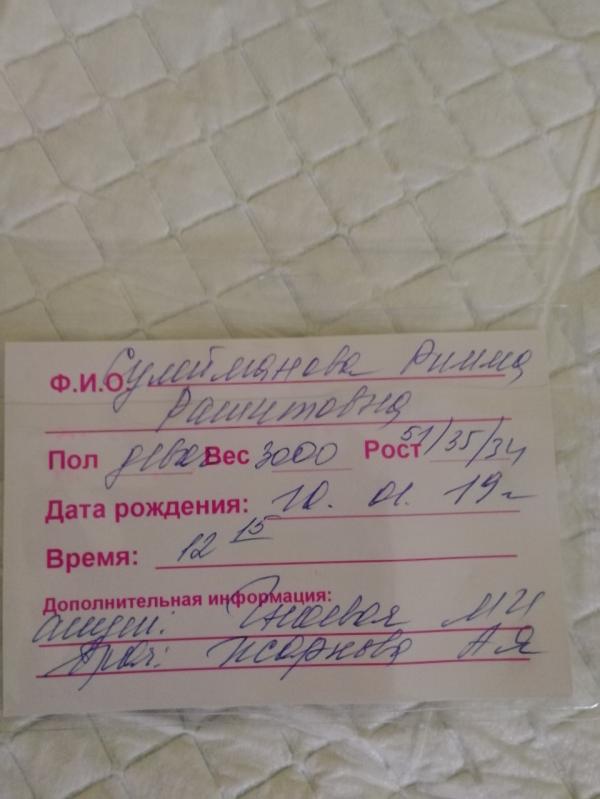 Ф.И.О Сулейманова Римма
Рашитовна
Пол девоч Вес 3000 Рост 51/35/34
Дата рождения: 10. 01. 19г
Время: 12 15
Дополнительная информация:
МИ
Врач: Жаркова АЯ